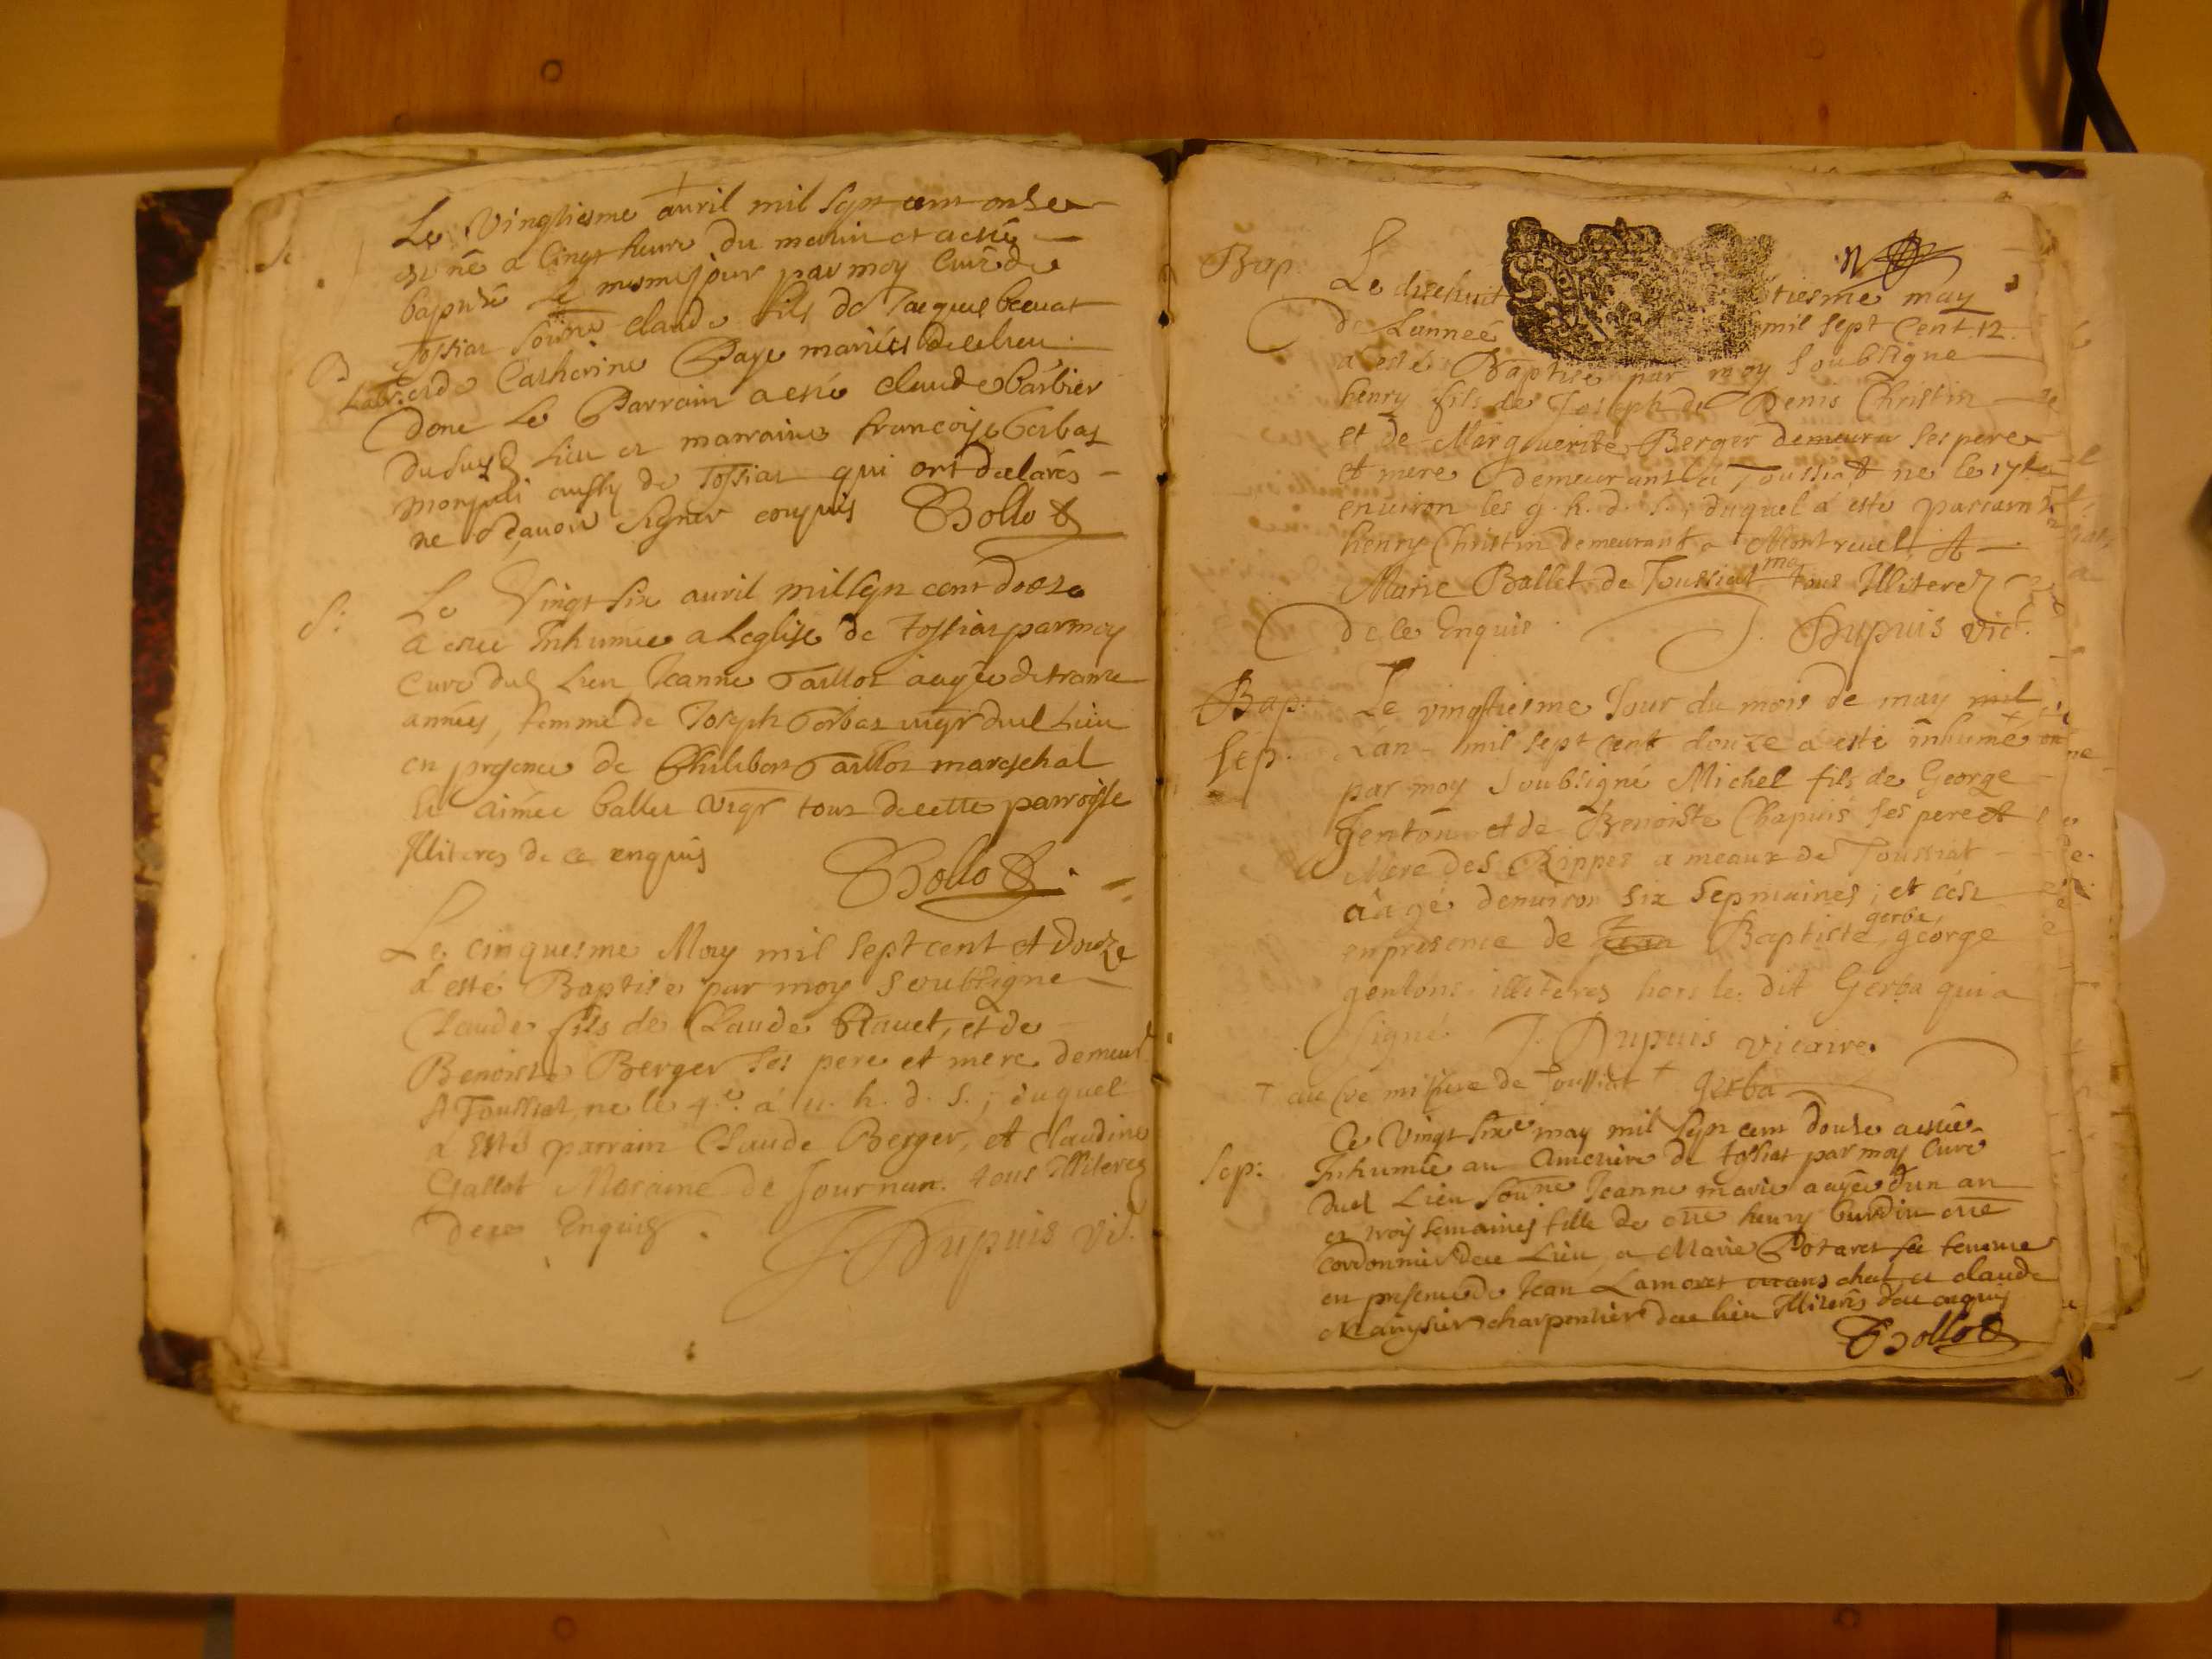 Le Vingtiesme auril mil sept cent onse
est né a cinqt heure du matin et a esté
baptisé le mesme jour par moy curé de
Tossiat soub.né claude fils de Jacques beeuat
B
Labr. et de Catherine Page mariés de ce lieu
Donc Le Parrain a esté claude barbier
dusuyd Lieu et marraine francoise Gerbaz
aussy de Tossiat qui ont declarés
ne sçauoir signer enquis Bollot
S: Le Vingt six auril mil sept cent doeze
a esté Inhumée a Leglise de Tossiat par moy
Curé dud Lieu Jeanne Taillot aagée de trante
années, femme de Joseph Gerbaz vigr dud Lieu
en presence de Philibert Taillot mareschal
et aimée ballet vigr tous de cette parroisse
Illiteres de ce enquis
Bollot
Le cinquesme May mil sept cent et douze
a esté Baptise par moy Soubsigne
Claude fils de Claude Rauet, et de
Benoiste Berger ses pere et mere demeut
A Toussiat, ne le 4.e a 11. h. d. s.; duquel
a Esté parrain Claude Berger, et Claudine
Gallot Maraine de Journan. tous Illiteres
de ce Enquis.
J. Dupuis vic.
Bap. Le dixehuit tiesme may
de Lanneé mil sept Cent 12.
a esté Baptise par moy Soubsigne
henry fils de Joseph de Denis Christin
et de Marguerite Berger demeura ses pere
et mere demeurant a Toussiat ne le 17e
enuiron les 9. h. d. s., duquel a este parrain
henry Christin demeurant a Montreuel, et
Marie Ballet de Toussiat me tous Illiterez
de ce Enquis.
J. Dupuis vic.
Bap. Le vingtiesme Jour du mois de may mil
Sep. Lan mil sept cent douze a esté inhumé +
par moy Soubsigné Michel fils de George
Genton et de Benoiste Chapuis ses pere et
Mere des Rippes a meaux de Toussiat
aagé denuiron six sepmaines; et cest
en presence de Jean Baptiste gerba, george
gentons illiteres hors le dit Gerba qui a
signé J. Dupuis vicaire.
+ au cemitiere de Toussiat + gerba
Ce Vingt sixe may mil sept cent douse a esté
Sep: Inhumée au Cimetiere de tossiat par moy Curé
dud Lieu soub.né Jeanne marie aagée d'un an
et trois semaines fille de henry burdin
cordonnier de ce Lieu, et Marie Potaret sa femme
en presence de Jean Lamoret et claude
charpentier de ce lieu Illiterés de ce enquis
Bollot